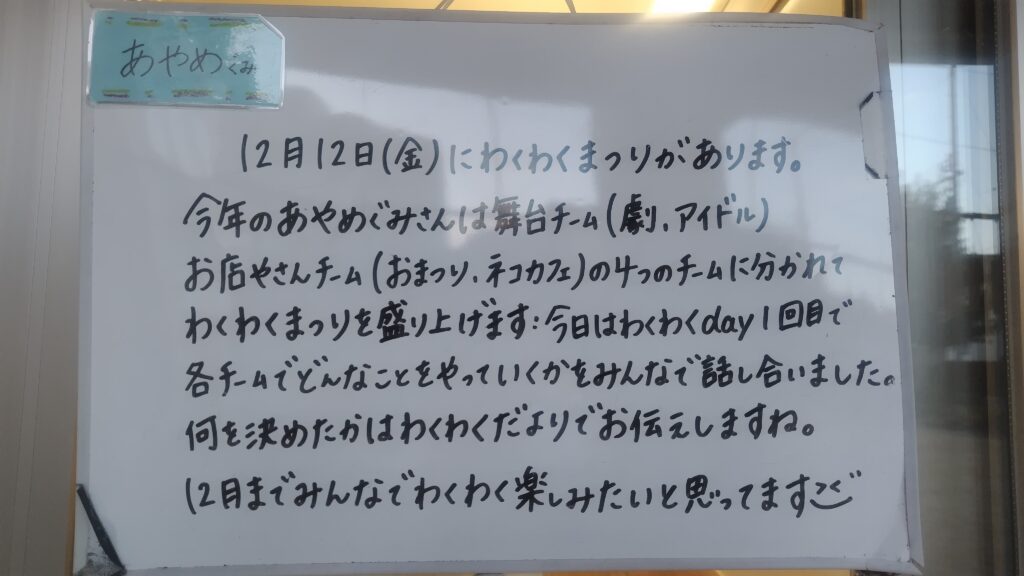 あやめぐみ
12月12日(金)にわくわくまつりがあります。
今年のあやめぐみさんは舞台チーム(劇、アイドル)
お店やさんチーム(おまつり、ネコカフェ)の4つのチームに分かれて
わくわくまつりを盛り上げます! 今日はわくわくday1回目で
各チームでどんなことをやっていくかをみんなで話し合いました。
何を決めたかはわくわくだよりでお伝えしますね。
12月までみんなでわくわく楽しみたいと思ってます